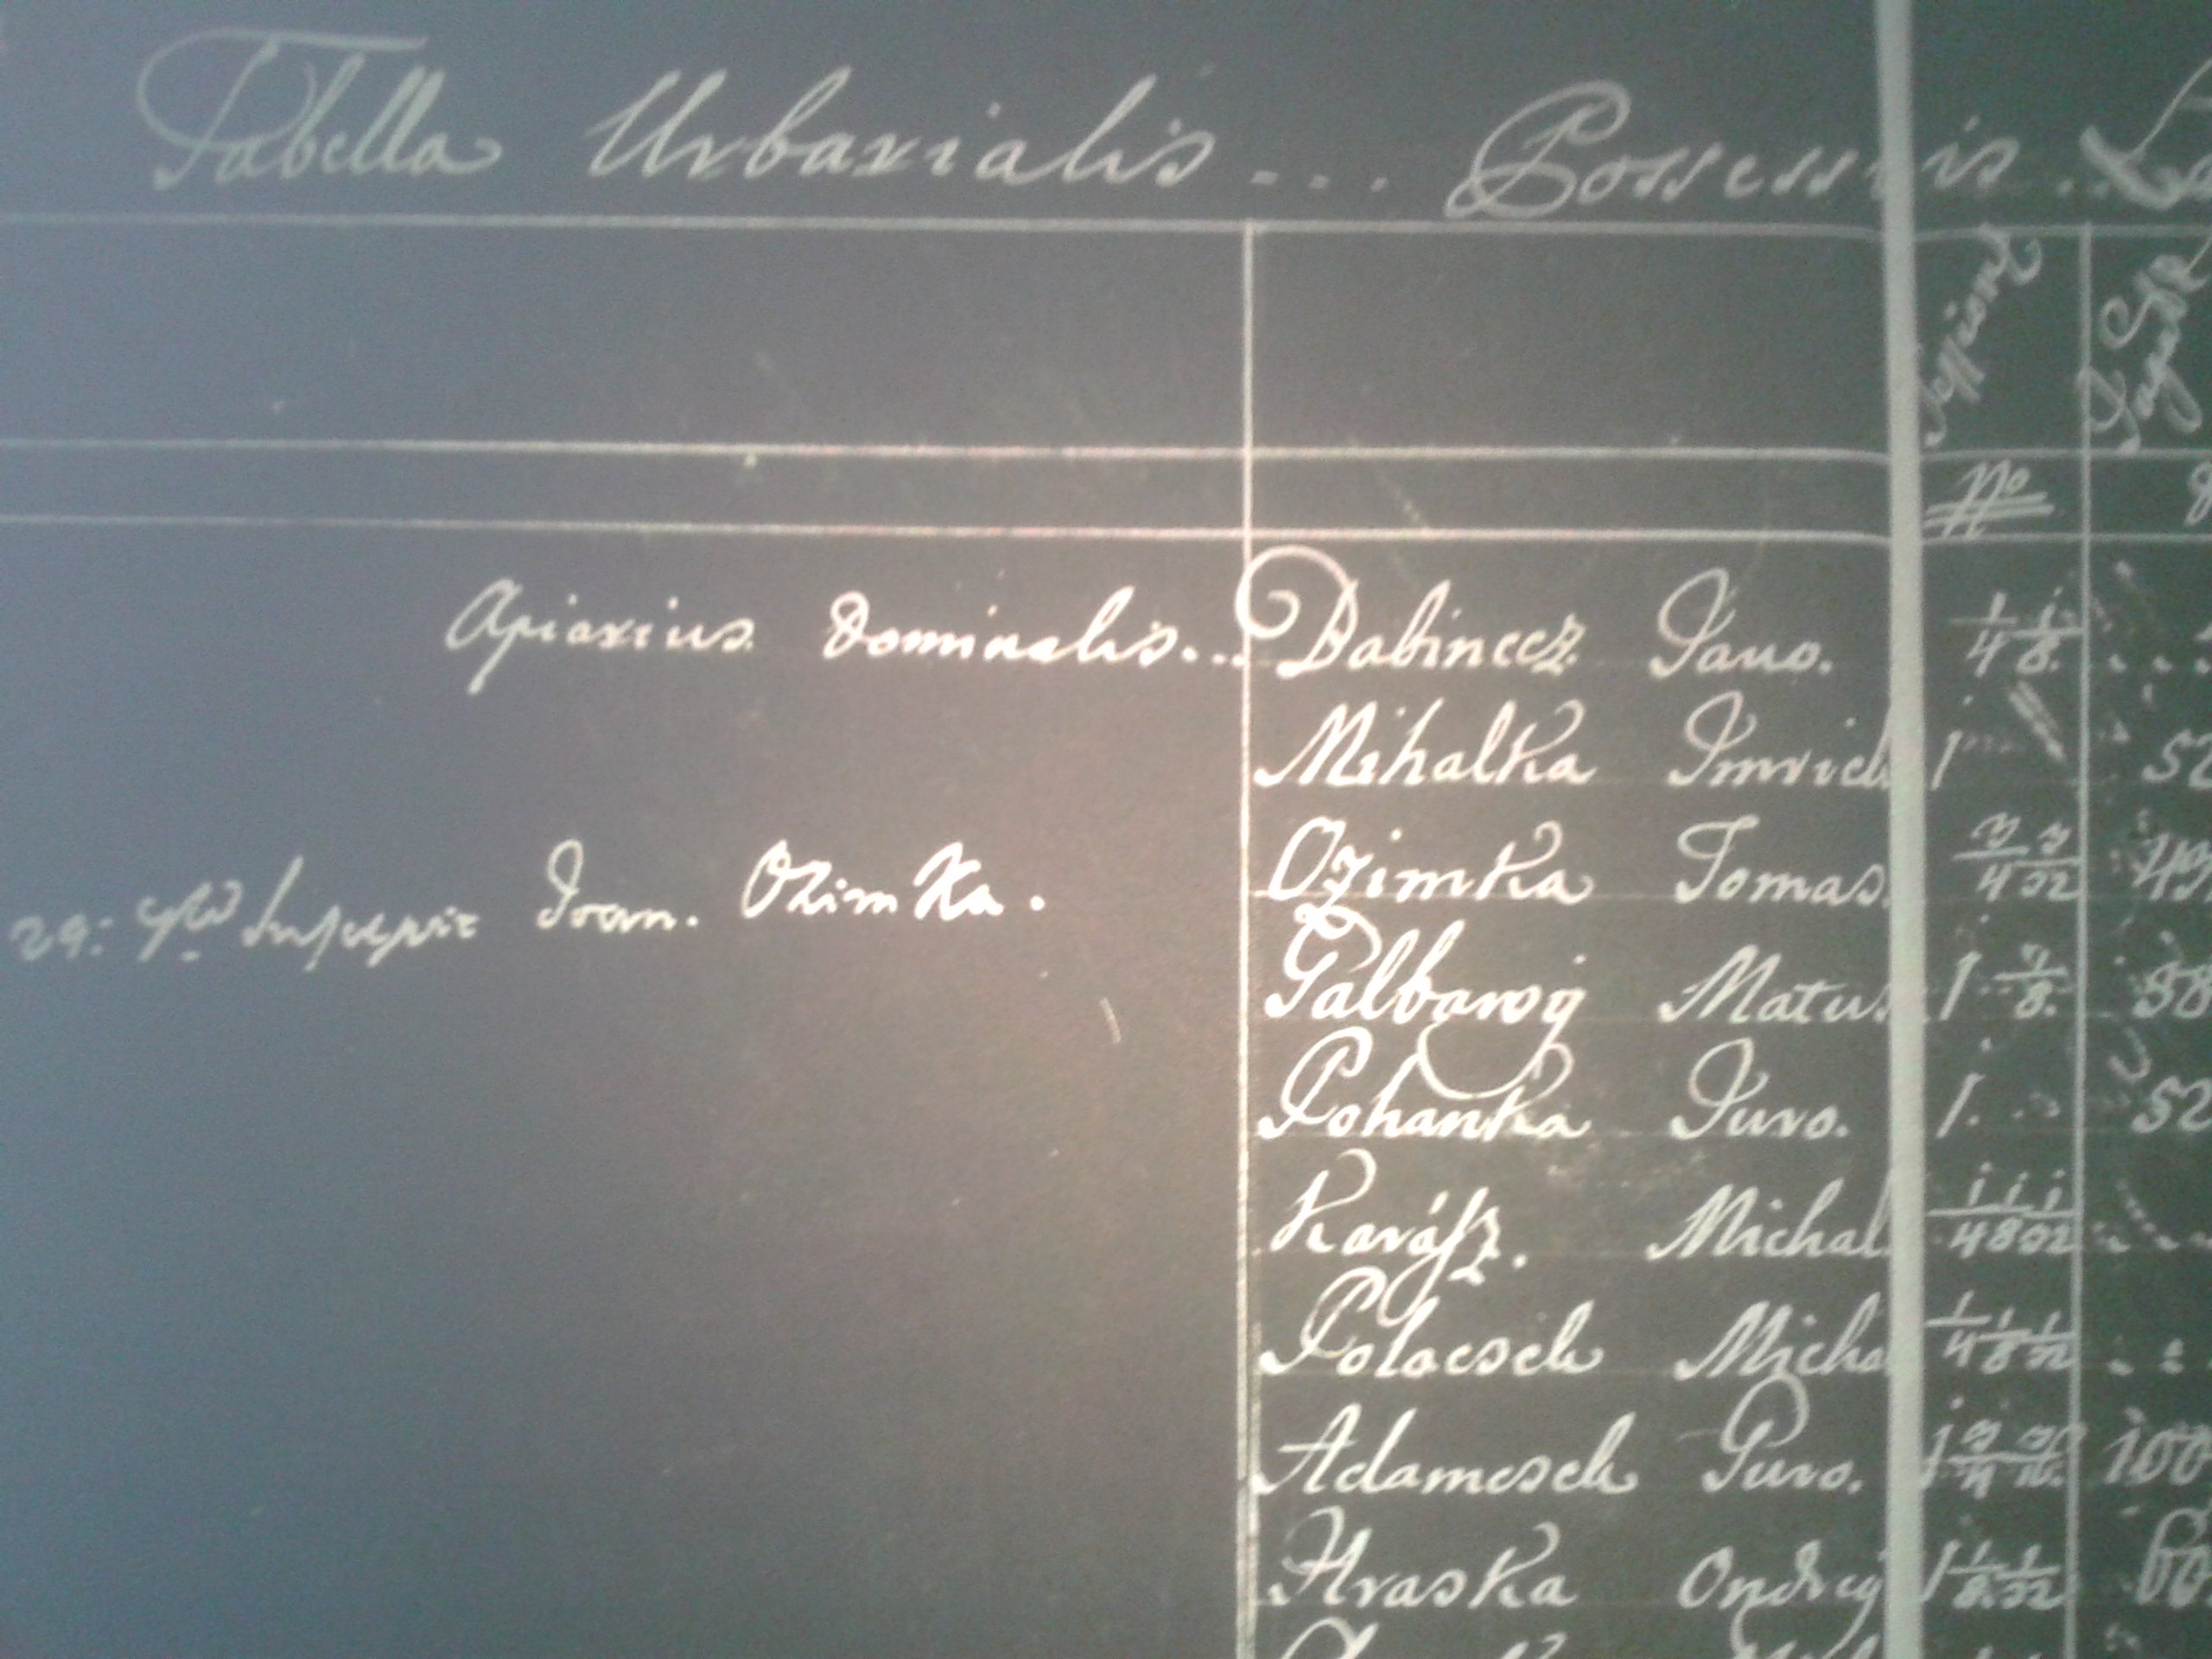 Tabella Urbarialis ... Possessionis ..
No
Apiarius Dominalis... Dabinecz Jano. 1/4 1/8.
Mihalka Imrich 1 52
29: Joan. Ozimka. Ozimka Tomas
Galbavÿ Matus 1 1/8.
Pohanka Juro. 1. 52
Karász. Michal 1/4 1/8 1/32
Polacsek Micha 1/4 1/8 1/32
Adamcsek Juro. 100
Hraska Ondrej 1 1/8 1/32 60